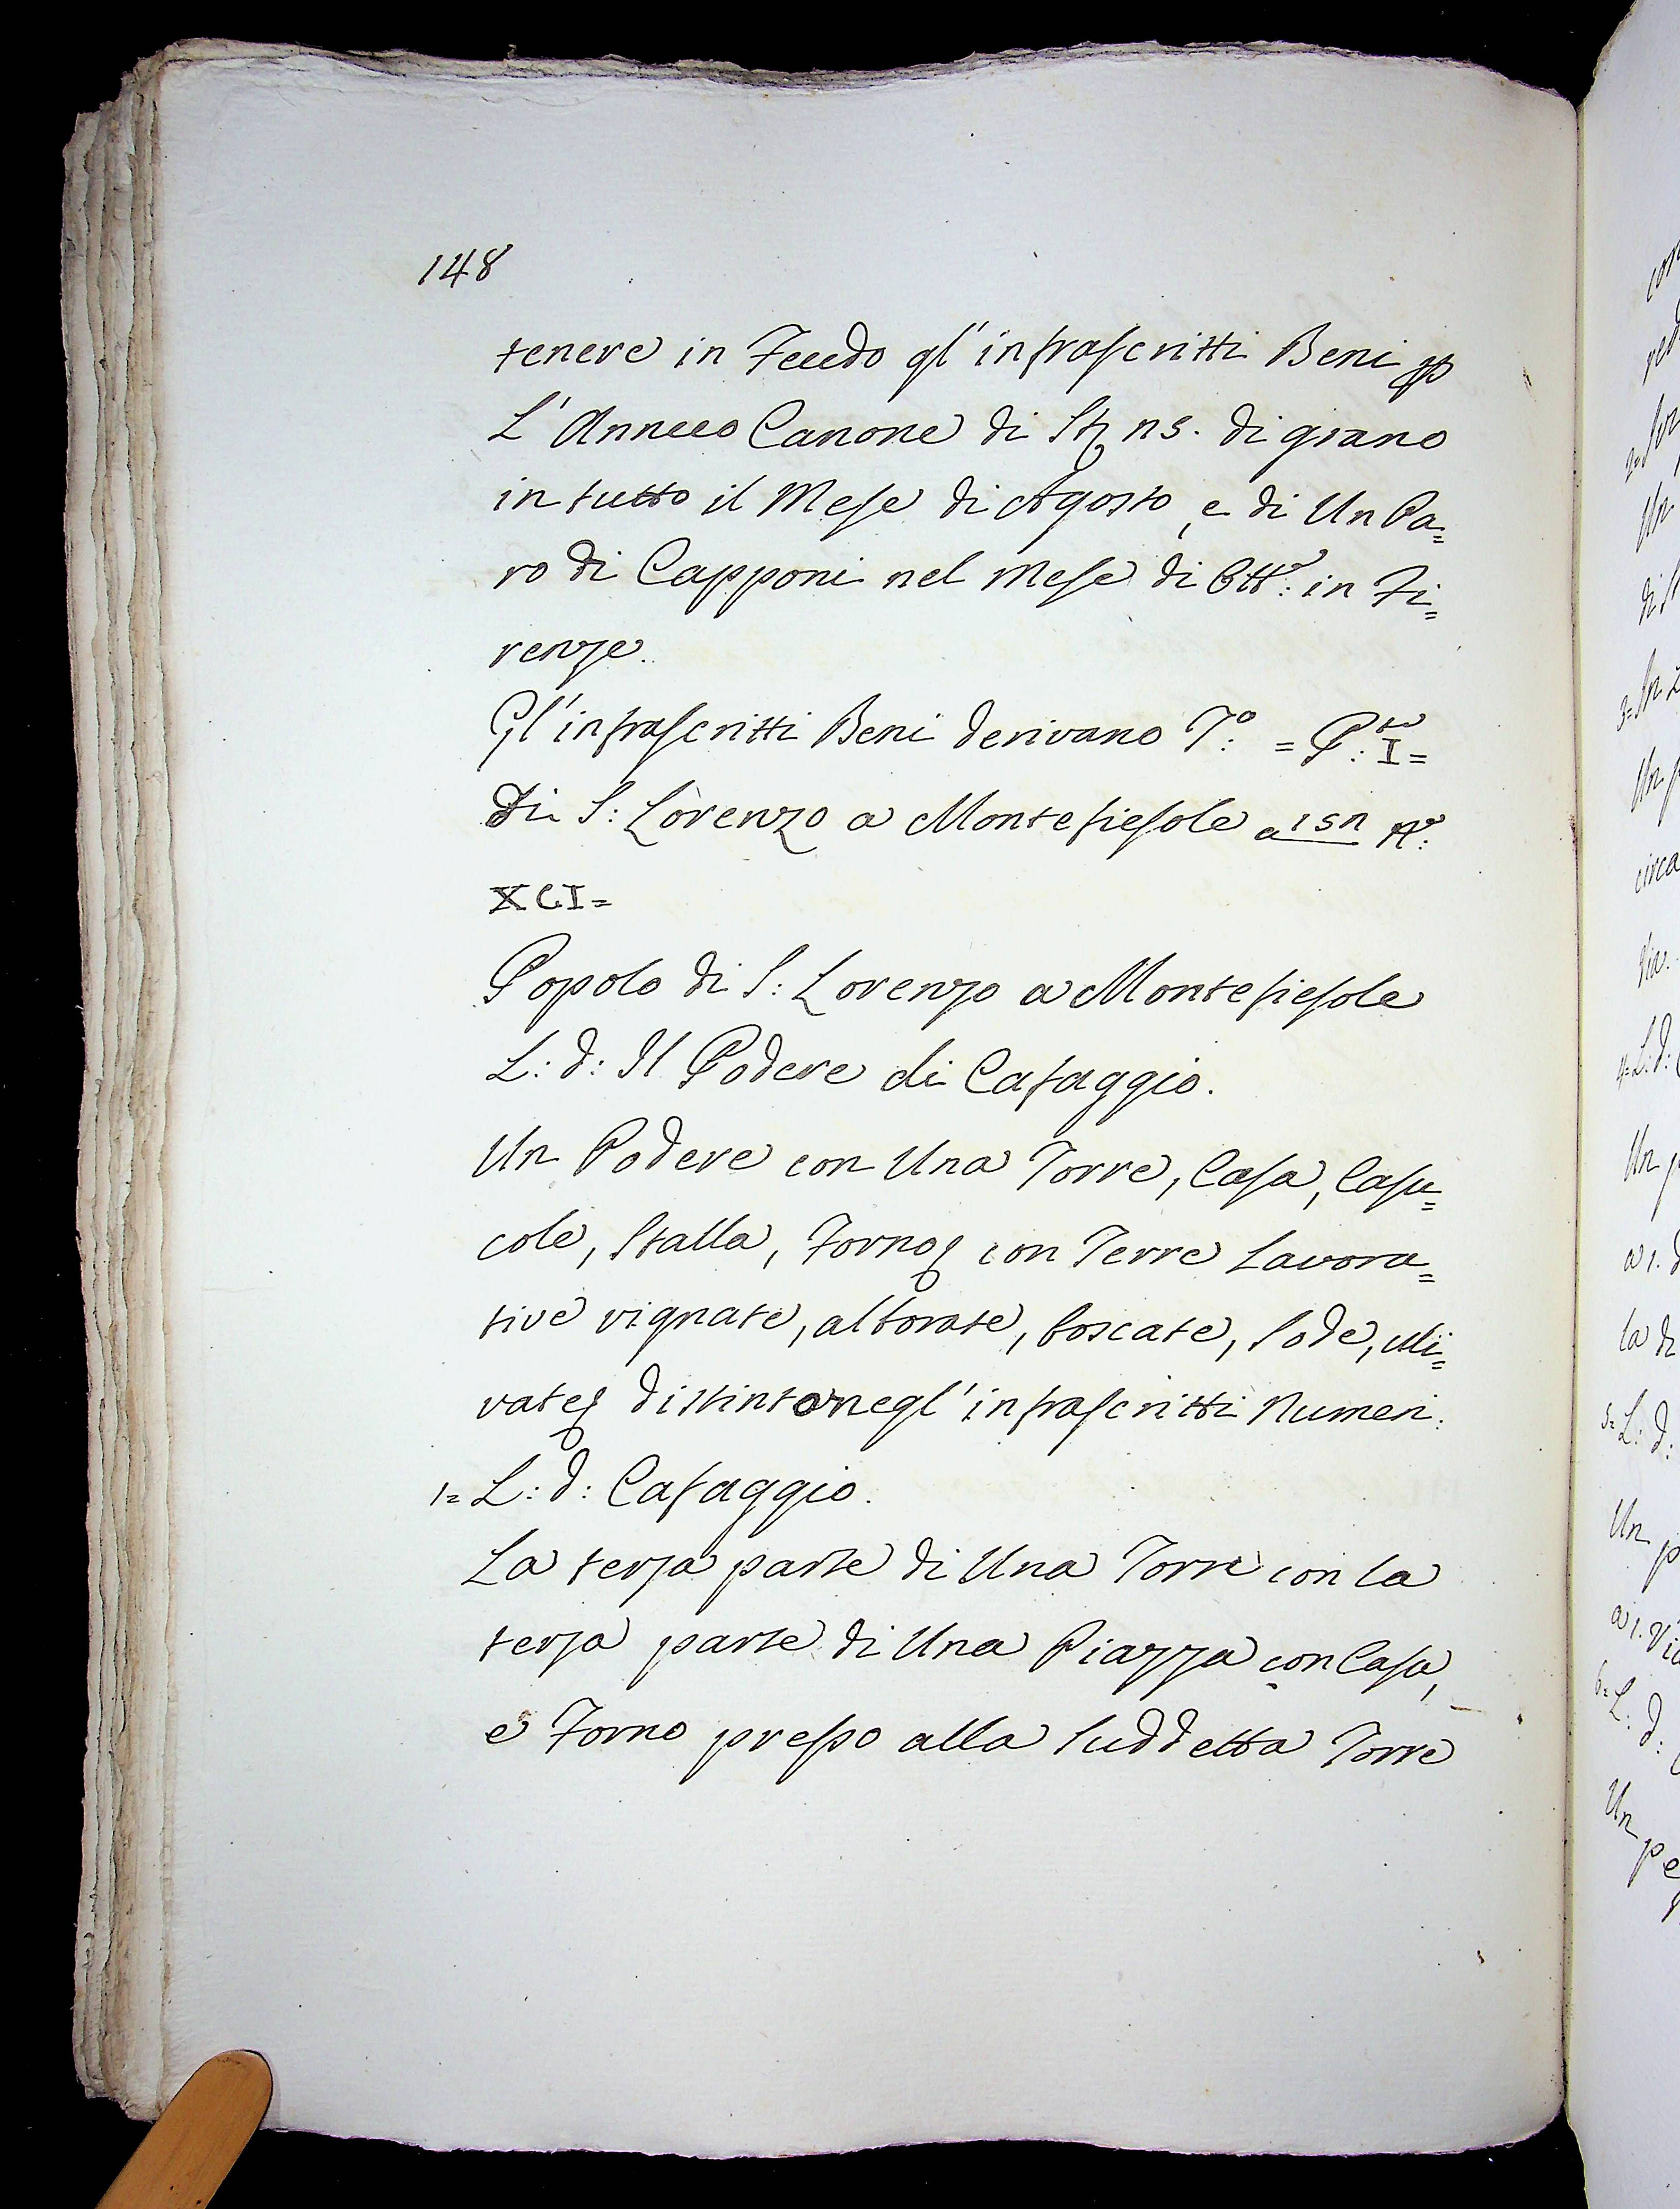 148
tenere in Feudo gl'infrascritti Beni p
L'Annuo Canone di St; ns. di grano
in tutto il Mese di Agosto, e di Un Pa=
ro di Capponi nel Mese di Ott.e: in Fi=
renze.
Gl'infrascritti Beni derivano T.o: = P.to: I=
Di S: Lorenzo a Montefiesole a 1sn N.o:
XCI=
Popolo di S: Lorenzo a Montefiesole
L: d: Il Podere di Cafaggio.
Un Podere con Una Torre, Casa, Casu=
cole, Stalla, Forno; con Terre Lavora=
tive vignate, alborate, boscate, Sode, Uli=
vate; distinto negl'infrascritti Numeri:
1= L: d: Cafaggio.
La terza parte di Una Torre con la
terza parte di Una Piazza con Casa,
e Forno presso alla Suddetta Torre